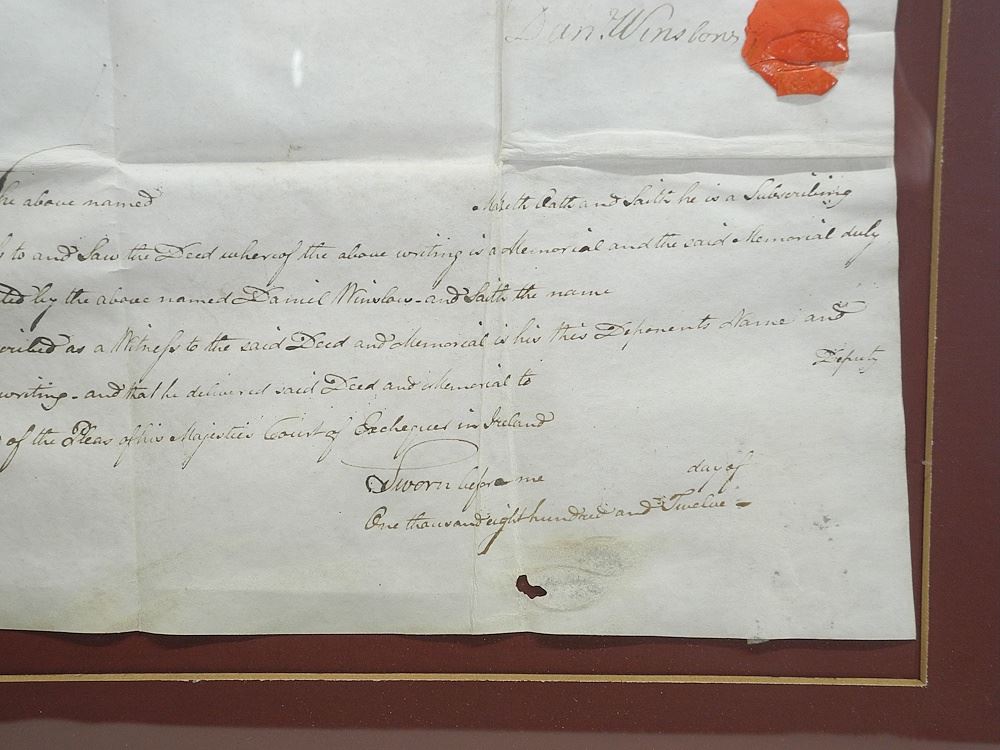 Danl. Winslow
he above named Maketh Oath and Saith he is a Subscribing
s to and Saw the Deed whereof the above writing is a Memorial and the said Memorial duly
ted by the above named Daniel Winslow - and Saith the name
cribed as a Witness to the said Deed and Memorial is his this Deponents Name and
writing - and that he delivered said Deed and Memorial to Deputy
of the Pleas of his Majesties Court of Exchequer in Ireland
Sworn before me day of
One thousand eight hundred and Twelve -